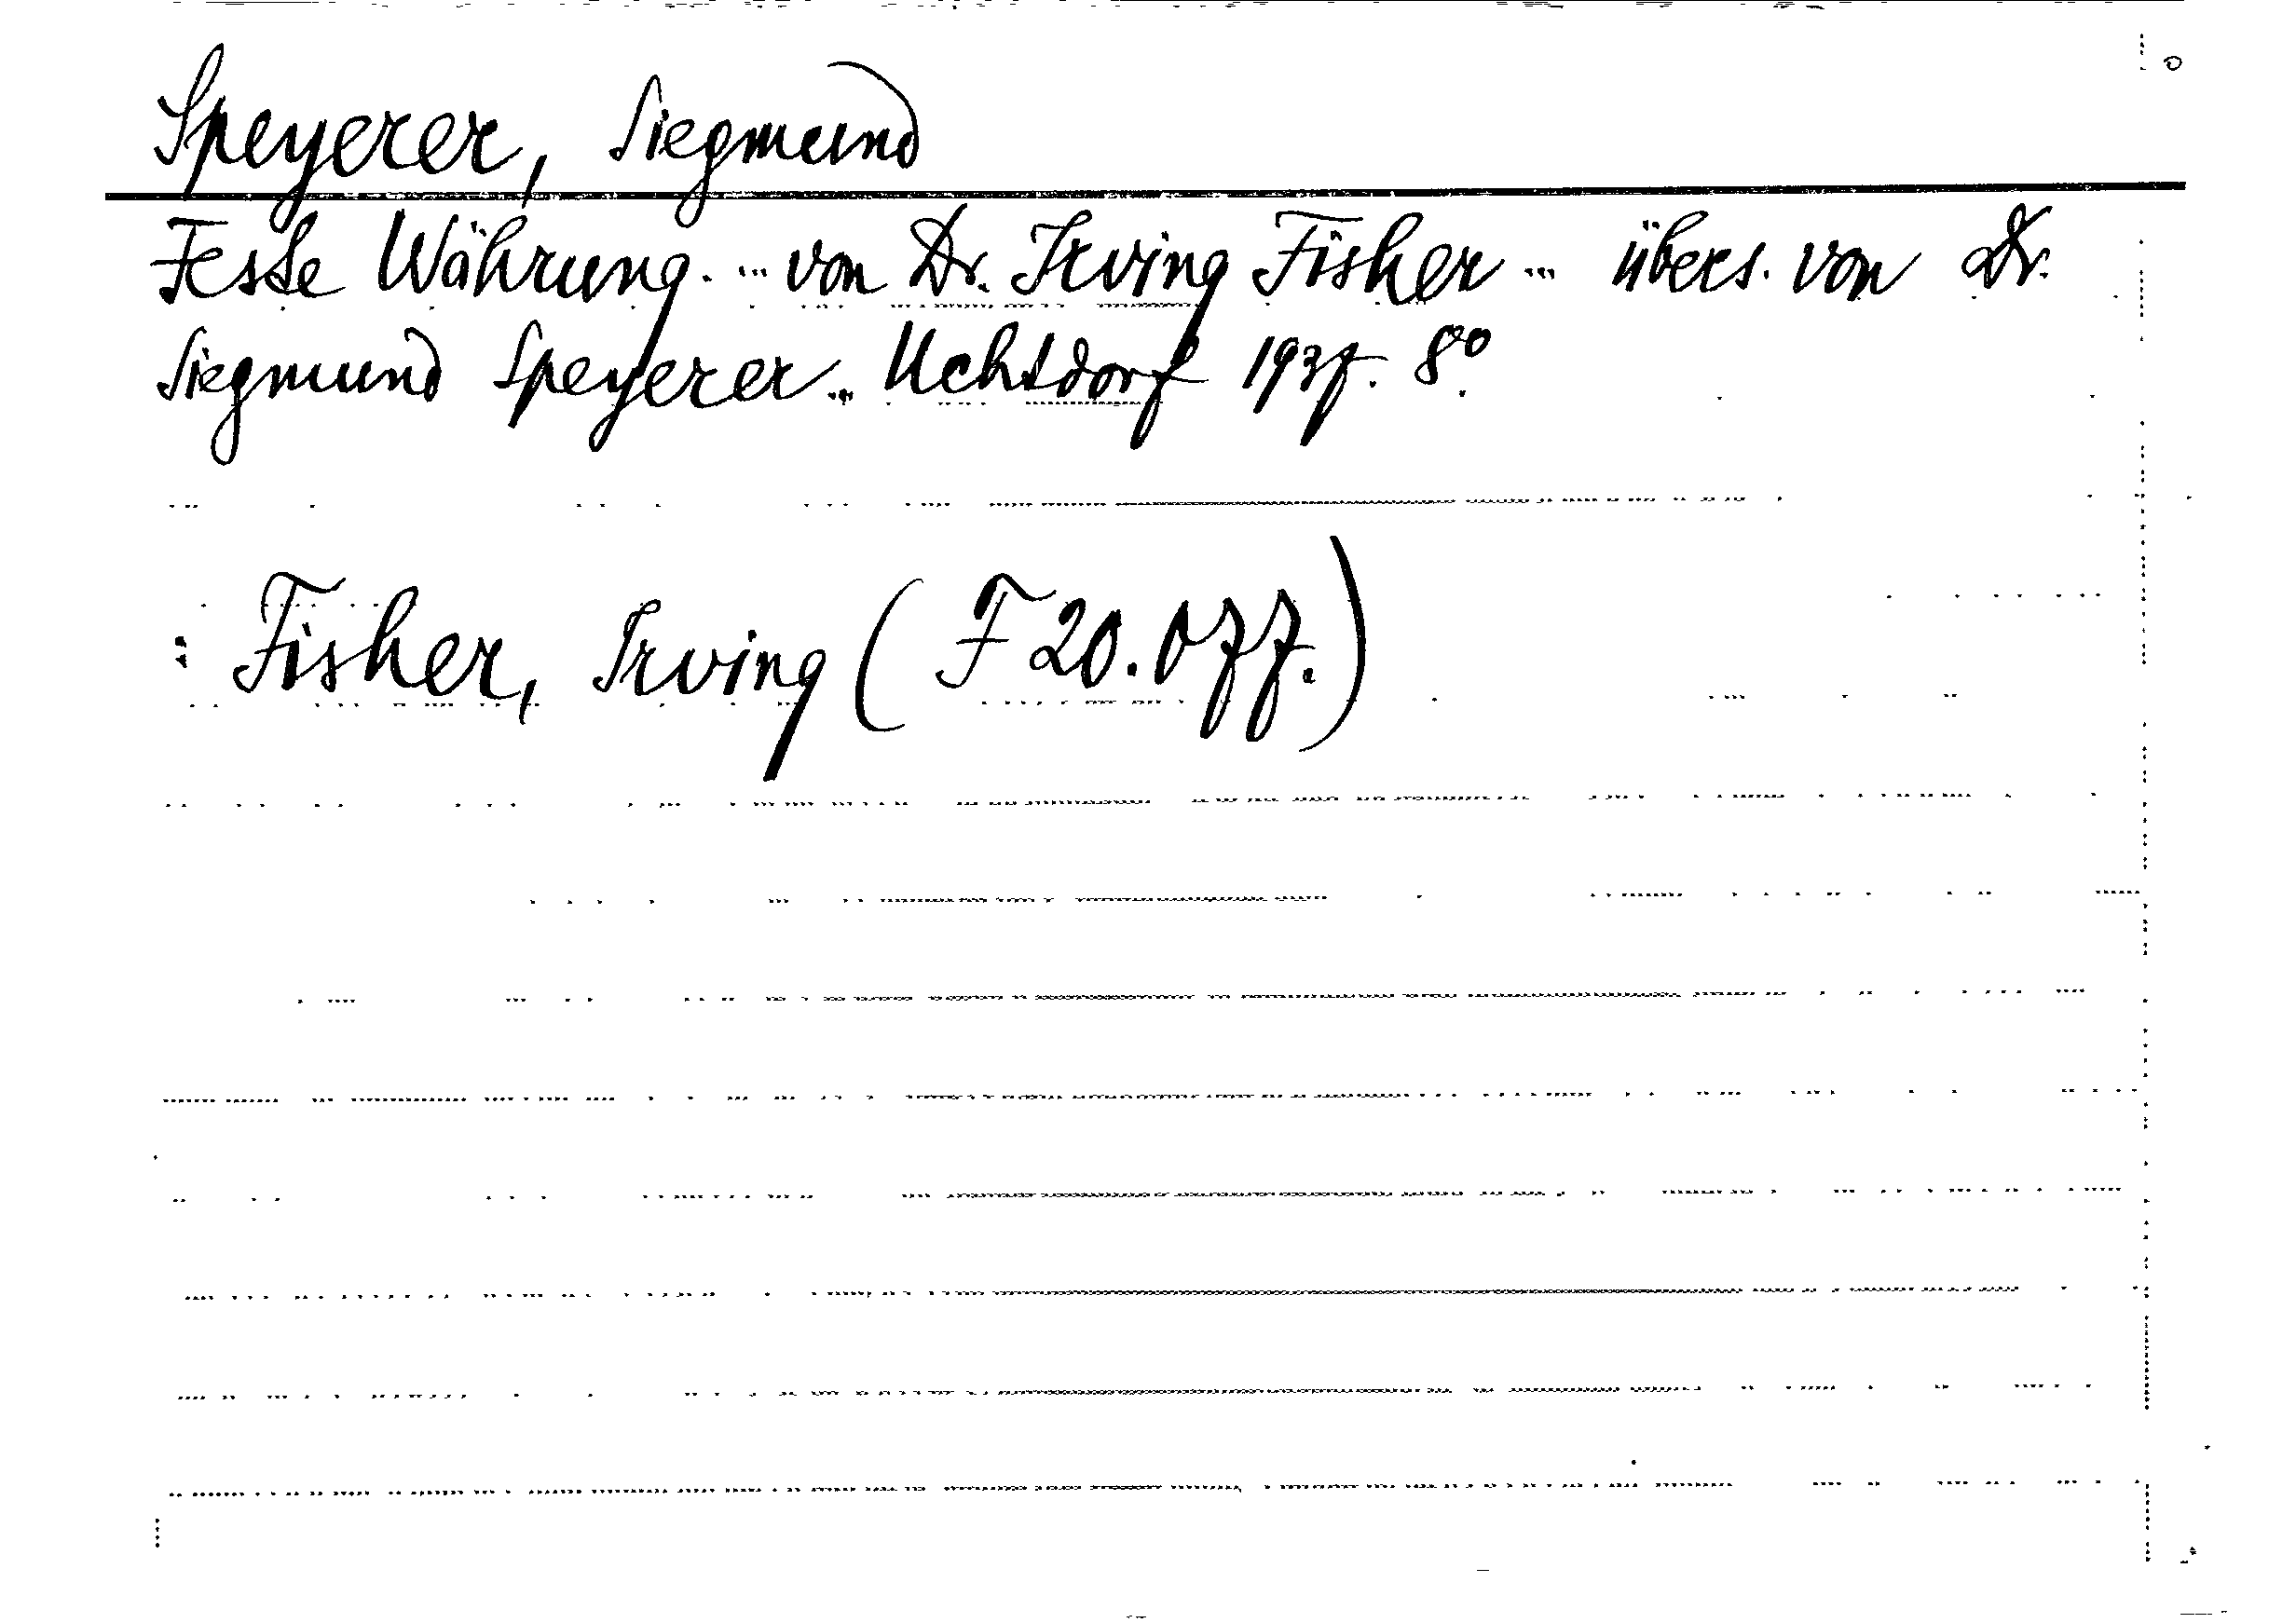 Speyerer, Siegmund
Feste Währung. ... von Dr. Irving Fisher ... übers. von Dr.
Siegmund Speyerer... Uchtdorf 1937. 8°
: Fisher, Irving (F 20.077.)